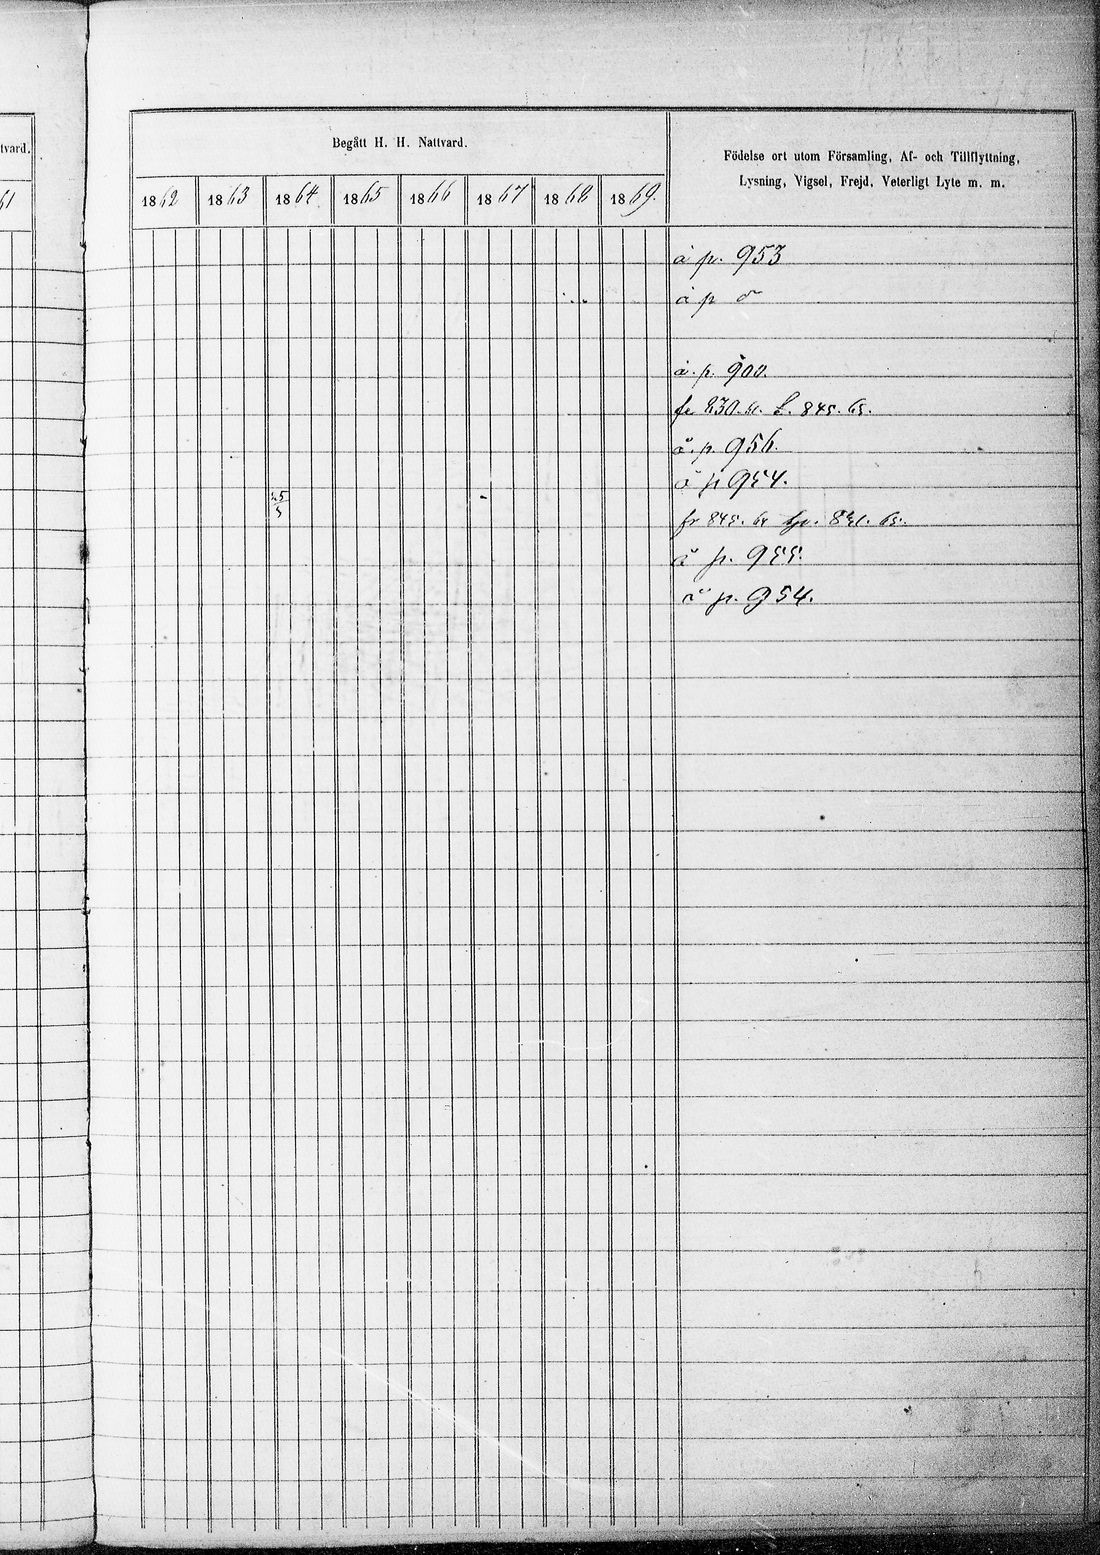 tvard.
61
Begått H. H. Nattvard.
Födelse ort utom Församling, Af- och Tillflyttning,
Lysning, Vigsel, Frejd, Veterligt Lyte m. m.
1862 1863 1864 1865 1866 1867 1868 1869.
å p. 953
å p
å. p. 900.
fr 230. 61. 845. 65.
å. p. 956.
å p 954.
25
5
fr 845. 64 831. 65.
å p. 955.
å p. 954.